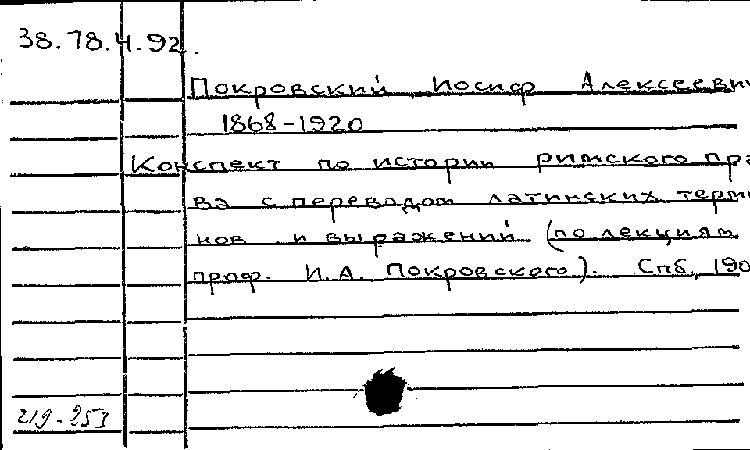 38.78.4.92.
Покровский Иосиф Алексеевич
1868-1920
Конспект по истории римского пра
ва с переводом латинских терми
нов и выражений (по лекциям
проф. И.А. Покровского). Спб, 190
219-253